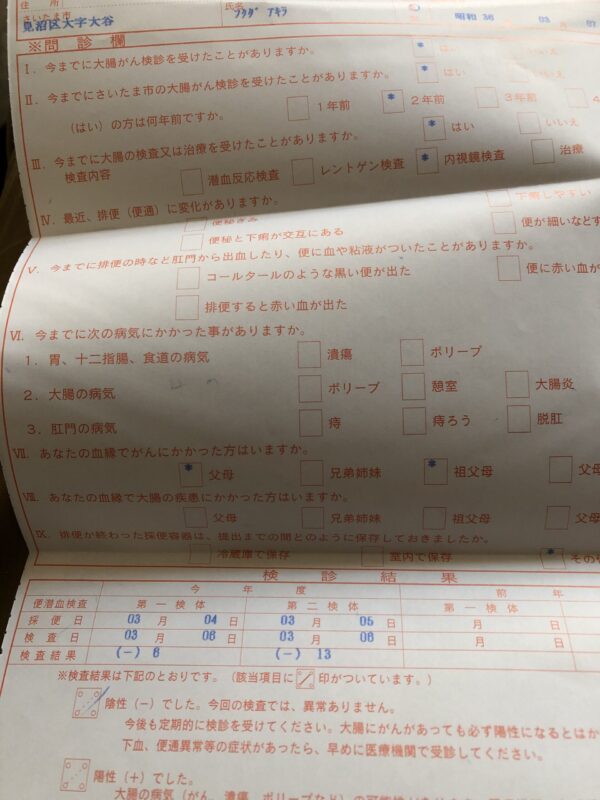 住 所 さいたま市 氏名
見沼区大字大谷 フクダ アキラ 昭和 36 03 月 07
※問診欄
Ⅰ．今までに大腸がん検診を受けたことがありますか。 * はい いいえ
Ⅱ．今までにさいたま市の大腸がん検診を受けたことがありますか。 * はい いいえ
（はい）の方は何年前ですか。 1年前 * 2年前 3年前 4
Ⅲ．今までに大腸の検査又は治療を受けたことがありますか。 * はい いいえ
検査内容 潜血反応検査 レントゲン検査 * 内視鏡検査 治療
Ⅳ．最近、排便（便通）に変化がありますか。
便秘ぎみ 下痢しやすい
便秘と下痢が交互にある 便が細いなどす
Ⅴ．今までに排便の時など肛門から出血したり、便に血や粘液がついたことがありますか。
コールタールのような黒い便が出た 便に赤い血が
排便すると赤い血が出た
Ⅵ．今までに次の病気にかかった事がありますか。
1．胃、十二指腸、食道の病気 潰瘍 ポリープ
2．大腸の病気 ポリープ 憩室 大腸炎
3．肛門の病気 痔 痔ろう 脱肛
Ⅶ．あなたの血縁でがんにかかった方はいますか。
* 父母 兄弟姉妹 * 祖父母 父母
Ⅷ．あなたの血縁で大腸の疾患にかかった方はいますか。
父母 兄弟姉妹 祖父母 父母
Ⅸ．排便が終わった採便容器は、提出までの間どのように保存しておきましたか。
冷蔵庫で保存 室内で保存 * その他
検診結果
便潜血検査 今年度 前年
第一検体 第二検体 第一検体
採便日 03 月 04 日 03 月 05 日 月 日
検査日 03 月 06 日 03 月 06 日 月 日
検査結果 (-) 6 (-) 13
※検査結果は下記のとおりです。（該当項目に 印がついています。）
陰性（−）でした。今回の検査では、異常ありません。
今後も定期的に検診を受けてください。大腸にがんがあっても必ず陽性になるとはか
下血、便通異常等の症状があったら、早めに医療機関で受診してください。
陽性（＋）でした。
大腸の病気（がん、潰瘍、ポリープなど）の可能性が